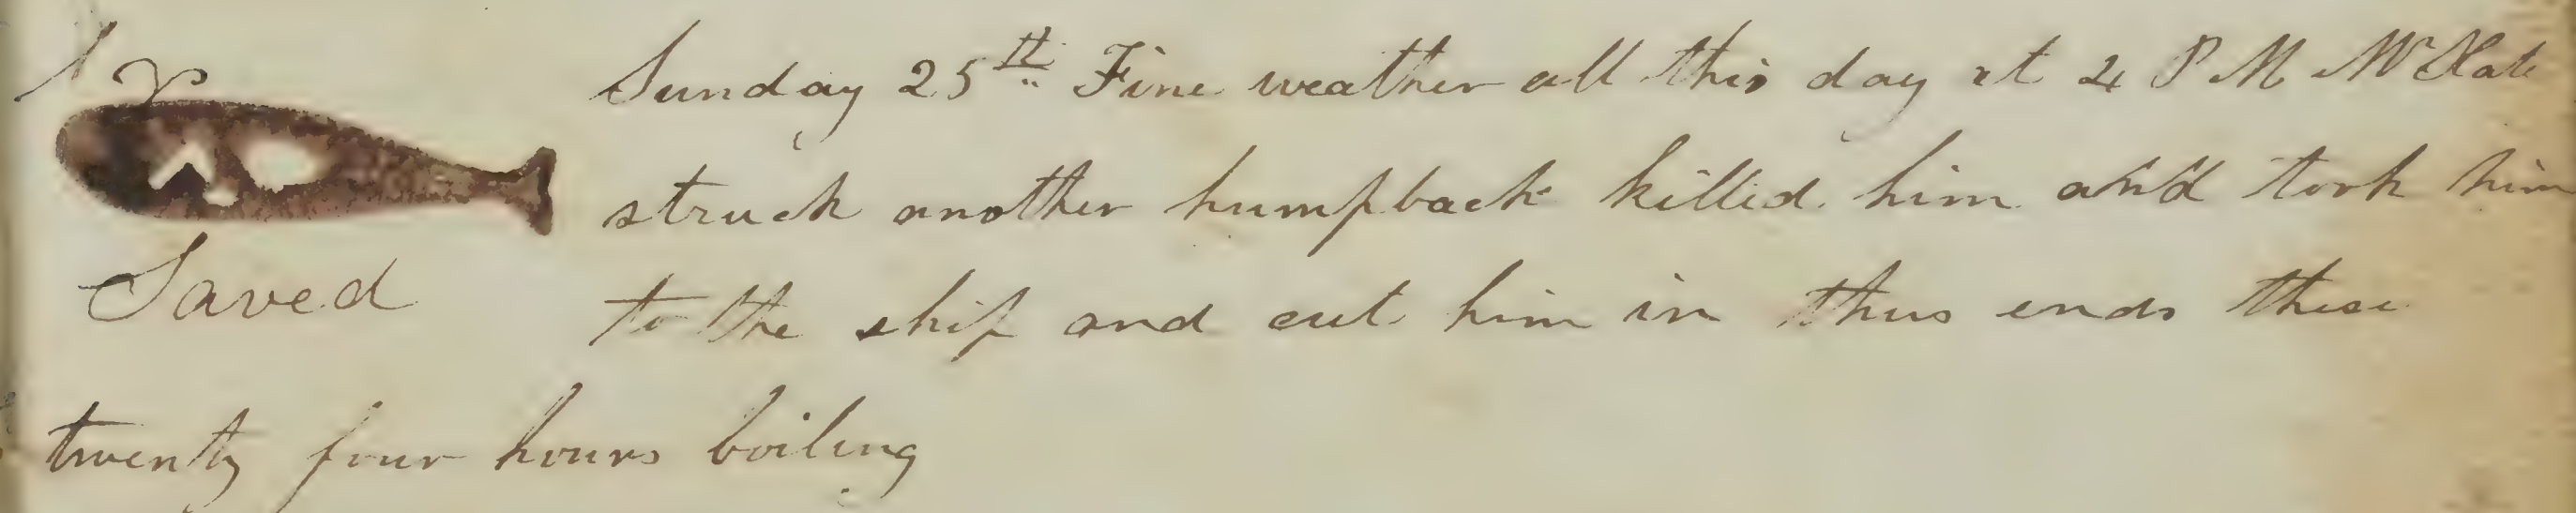 Sunday 25th Fine weather all this day at 4 P M Mr
struck another humpback killed him and took him
Saved
to the ship and cut him in thus ends these
twenty four hours boiling